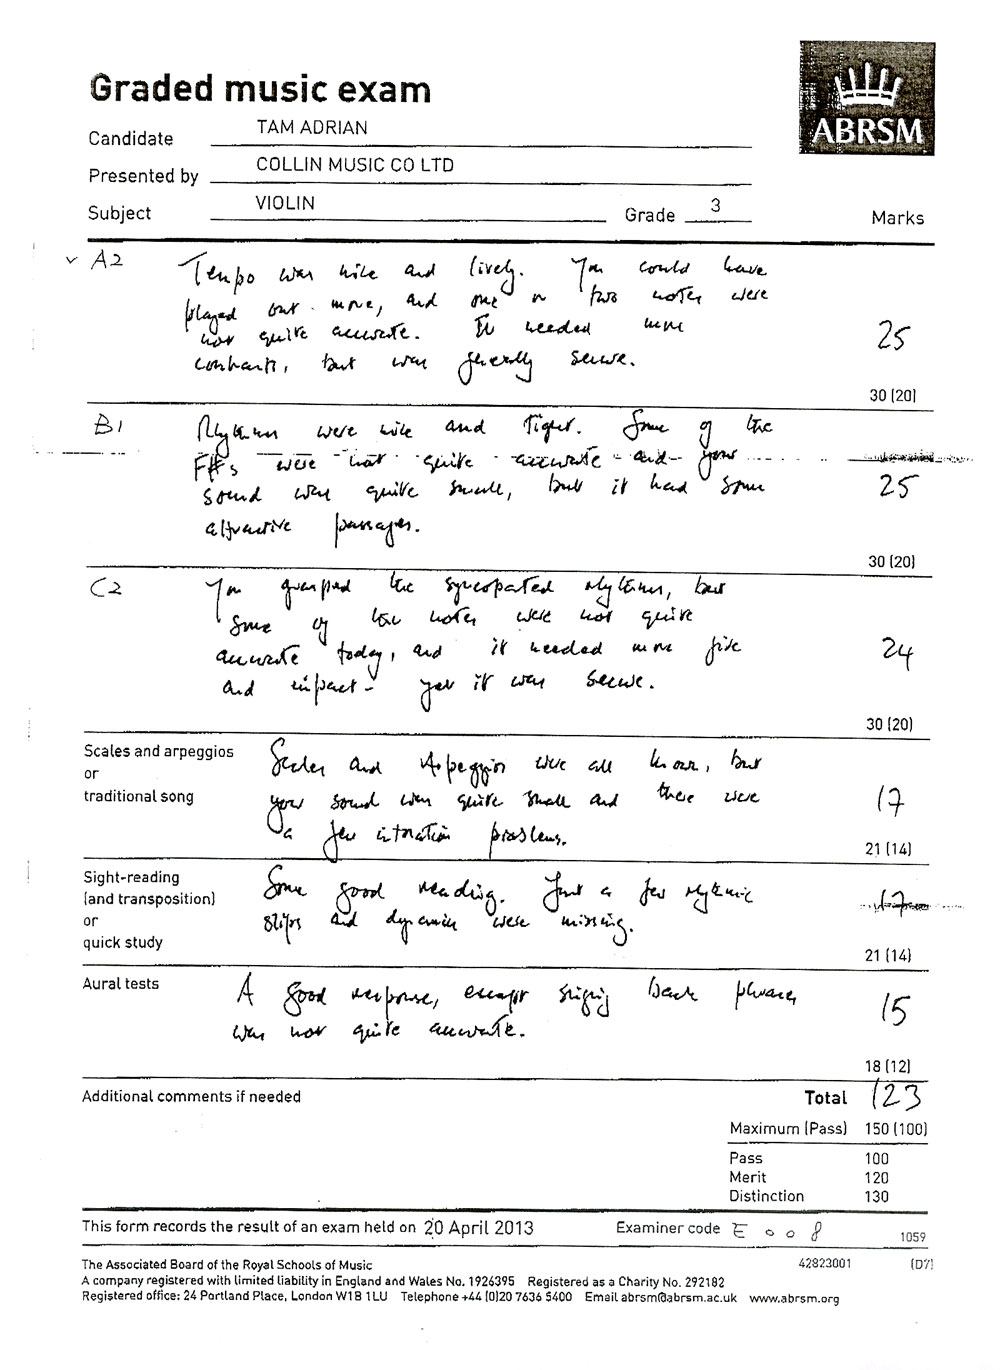 Graded music exam
ABRSM
Candidate TAM ADRIAN
Presented by COLLIN MUSIC CO LTD
Subject VIOLIN Grade 3 Marks
A2 Tempo was nice and lively. You could have
played out more, and one or two notes were
not quite accurate. It needed more 25
contrasts, but was generally secure.
30 (20)
B1 Rhythms were nice and tight. Some of the
F#s were not quite accurate and your
sound was quite small, but it had some 25
attractive passages.
30 (20)
C2 You grasped the syncopated rhythms, but
some of the notes were not quite
accurate today, and it needed more fire 24
and impact - yet it was secure.
30 (20)
Scales and arpeggios
or
traditional song
Scales and Arpeggios were all known, but
your sound was quite small and there were 17
a few intonation problems.
21 (14)
Sight-reading
(and transposition)
or
quick study
Some good reading. Just a few rhythmic 17
slips and dynamics were missing.
21 (14)
Aural tests A good response, except singing back phrases 15
was not quite accurate.
18 (12)
Additional comments if needed Total 123
Maximum (Pass) 150 (100)
Pass 100
Merit 120
Distinction 130
This form records the result of an exam held on 20 April 2013 Examiner code E 008 1059
The Associated Board of the Royal Schools of Music 42823001 (D7)
A company registered with limited liability in England and Wales No. 1926395 Registered as a Charity No. 292182
Registered office: 24 Portland Place, London W1B 1LU Telephone +44 (0)20 7636 5400 Email abrsm@abrsm.ac.uk www.abrsm.org